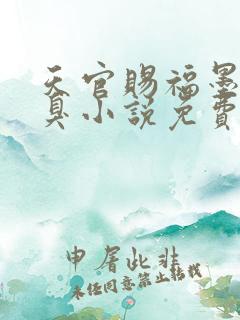 天官赐福墨
真小说免费
申屠此非
未经同意禁止转载